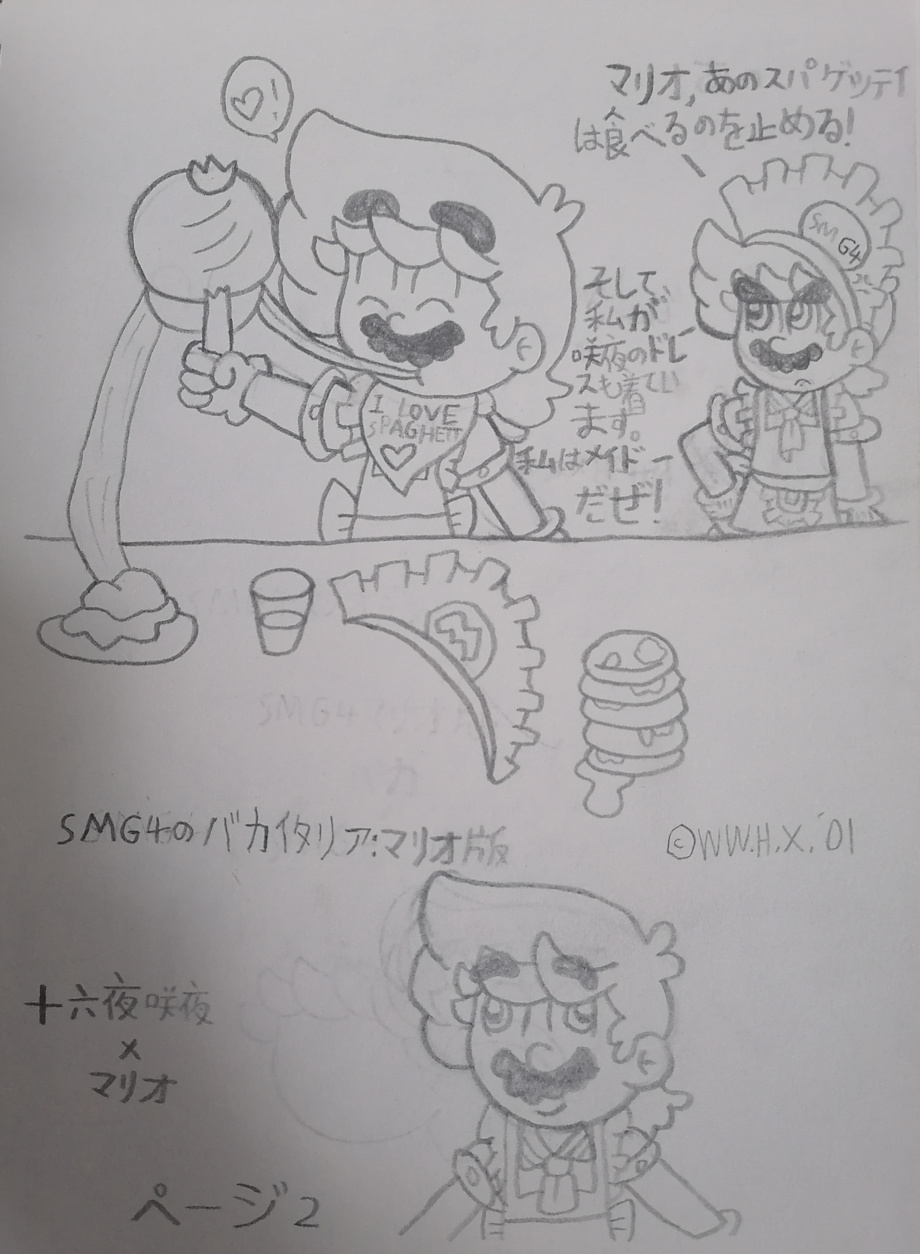 マリオ,あのスパゲッテイ
は食べるのを止める!
SM
G4
そして、
私が
咲夜のドレ
スも着てい
ます。
私はメイドー
だぜ!
I LOVE
SPAGHETT
SMG4のバカイタリア:マリオ版
©WW.H.X.'01
十六夜咲夜
×
マリオ
ページ2